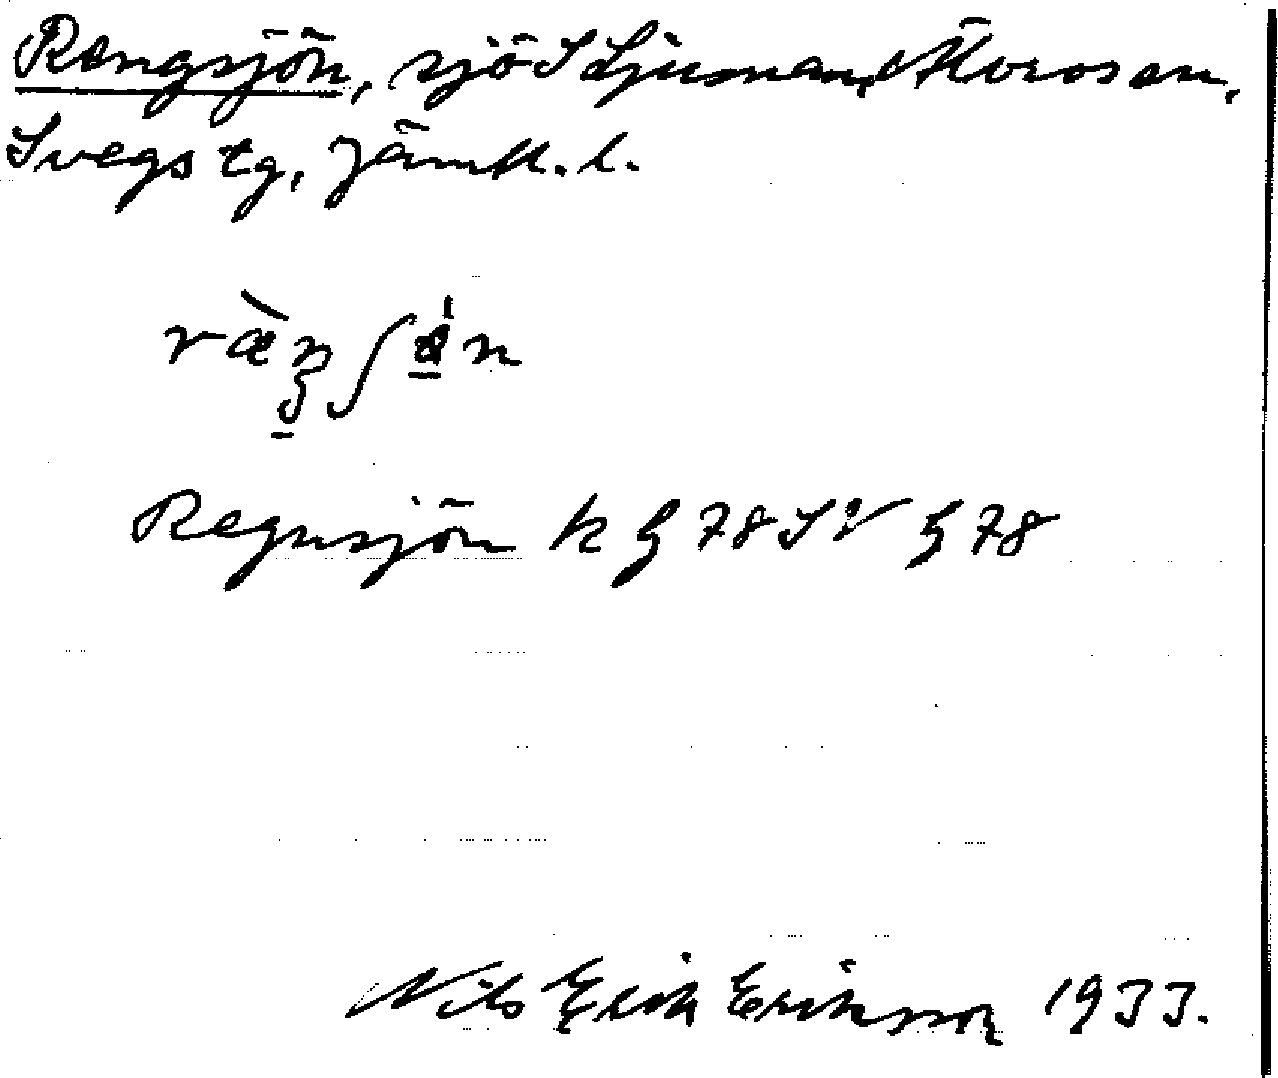 Rengsjön, sjö S Ljusnan, Morosen,
Svegs tg, Jämtl. l.
Regnsjön k § 78 SV § 78
Nils Erik Eriksson 1933.